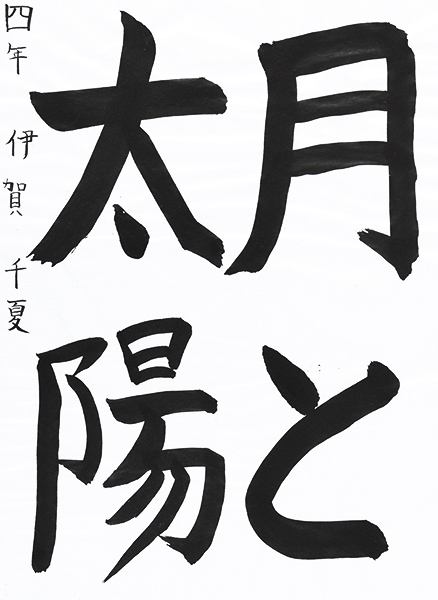 月と
太陽
四年 伊賀 千夏